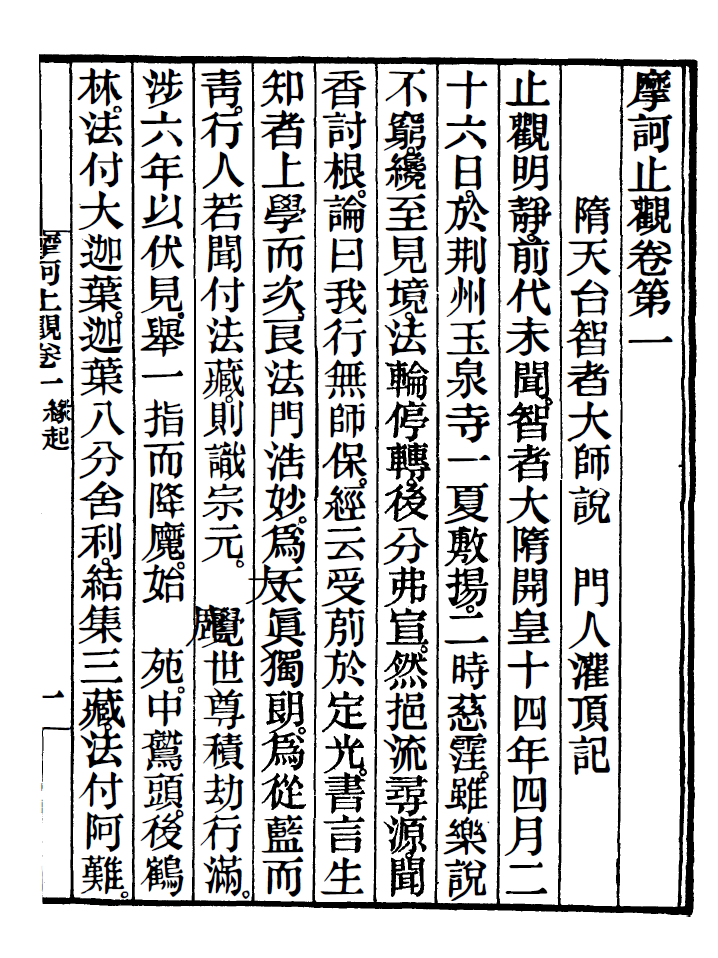 摩訶止觀卷第一
隋天台智者大師說　門人灌頂記
止觀明靜。前代未聞。智者大隋開皇十四年四月二
十六日。於荆州玉泉寺一夏敷揚。二時慈霔。雖樂說
不窮。纔至見境。法輪停轉。後分弗宣。然挹流尋源。聞
香討根。論曰我行無師保。經云受莂於定光。書言生
知者上學而次良。法門浩妙。爲天眞獨朗。爲從藍而
靑。行人若聞付法藏。則識宗元。大覺世尊積劫行滿。
涉六年以伏見。舉一指而降魔。始鹿苑。中鷲頭。後鶴
林。法付大迦葉。迦葉八分舍利。結集三藏。法付阿難。
摩訶止觀卷一　緣起　一